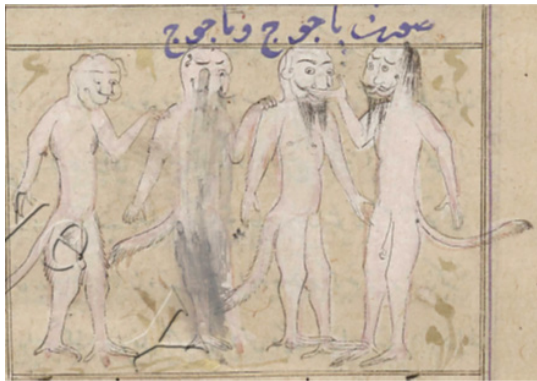 صورت یاجوج وماجوج